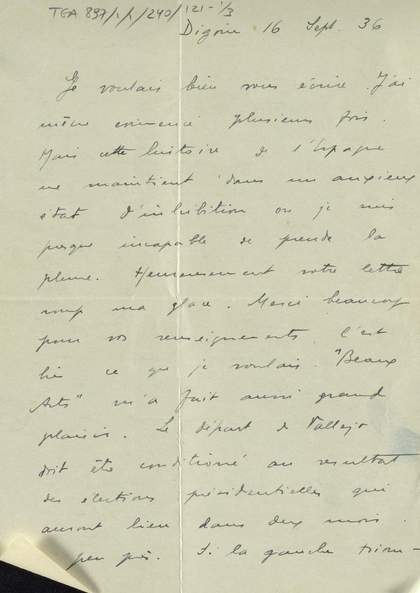 TGA 897/1/1/240/121-1/3
Digoin 16 Sept. 36
Je voulais bien vous écrire. J'ai
même commencé plusieurs fois.
Mais cette histoire de l'Espagne
me maintient dans un anxieux
état d'inhibition ou je suis
presque incapable de prendre la
plume. Heureusement votre lettre
romp ma glace. Merci beaucoup
pour vos renseignements. C'est
bien ce que je voulais. "Beaux
Arts" m'a fait aussi grand
plaisir. Le départ de Vallejo
doit être conditioné au resultat
des élections présidentielles qui
auront lieu dans deux mois
peu près. Si la gauche triom-